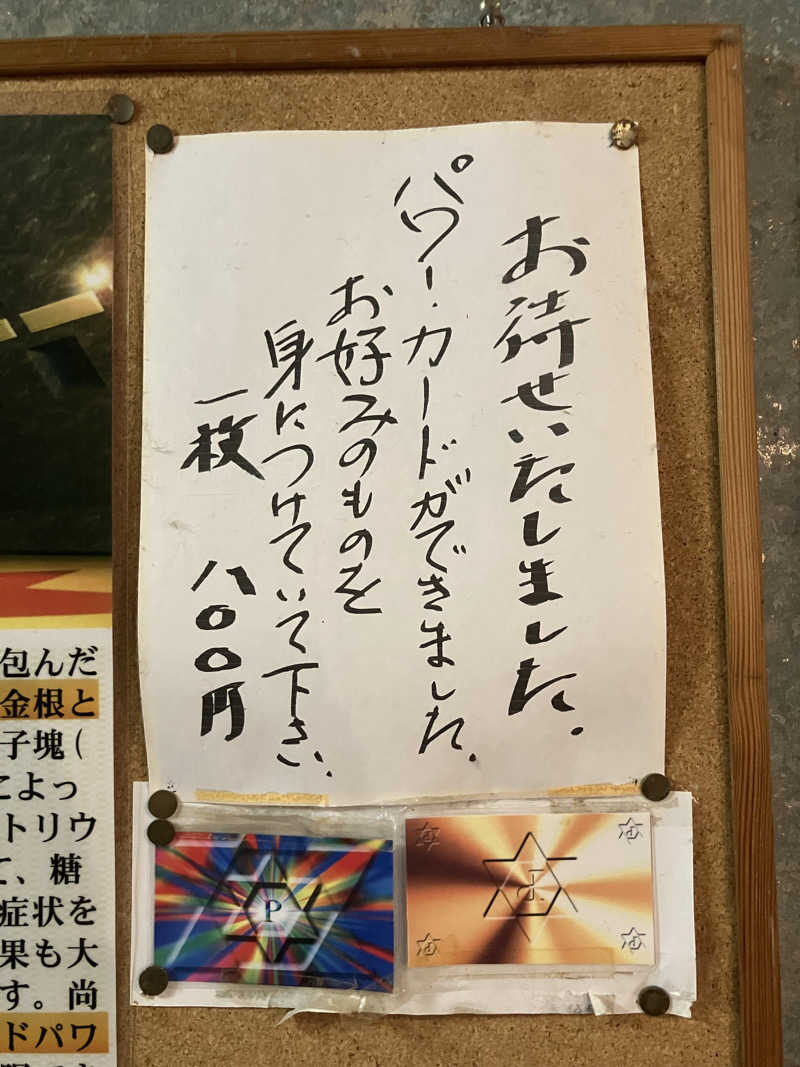 お待せいたしました.
パワー・カードができました.
お好みのものを
身につけていて下さい.
一枚 八〇〇円
包んだ
金根と
子塊(
こよっ
トリウ
て、糖
症状を
果も大
す。尚
ドパワ
P